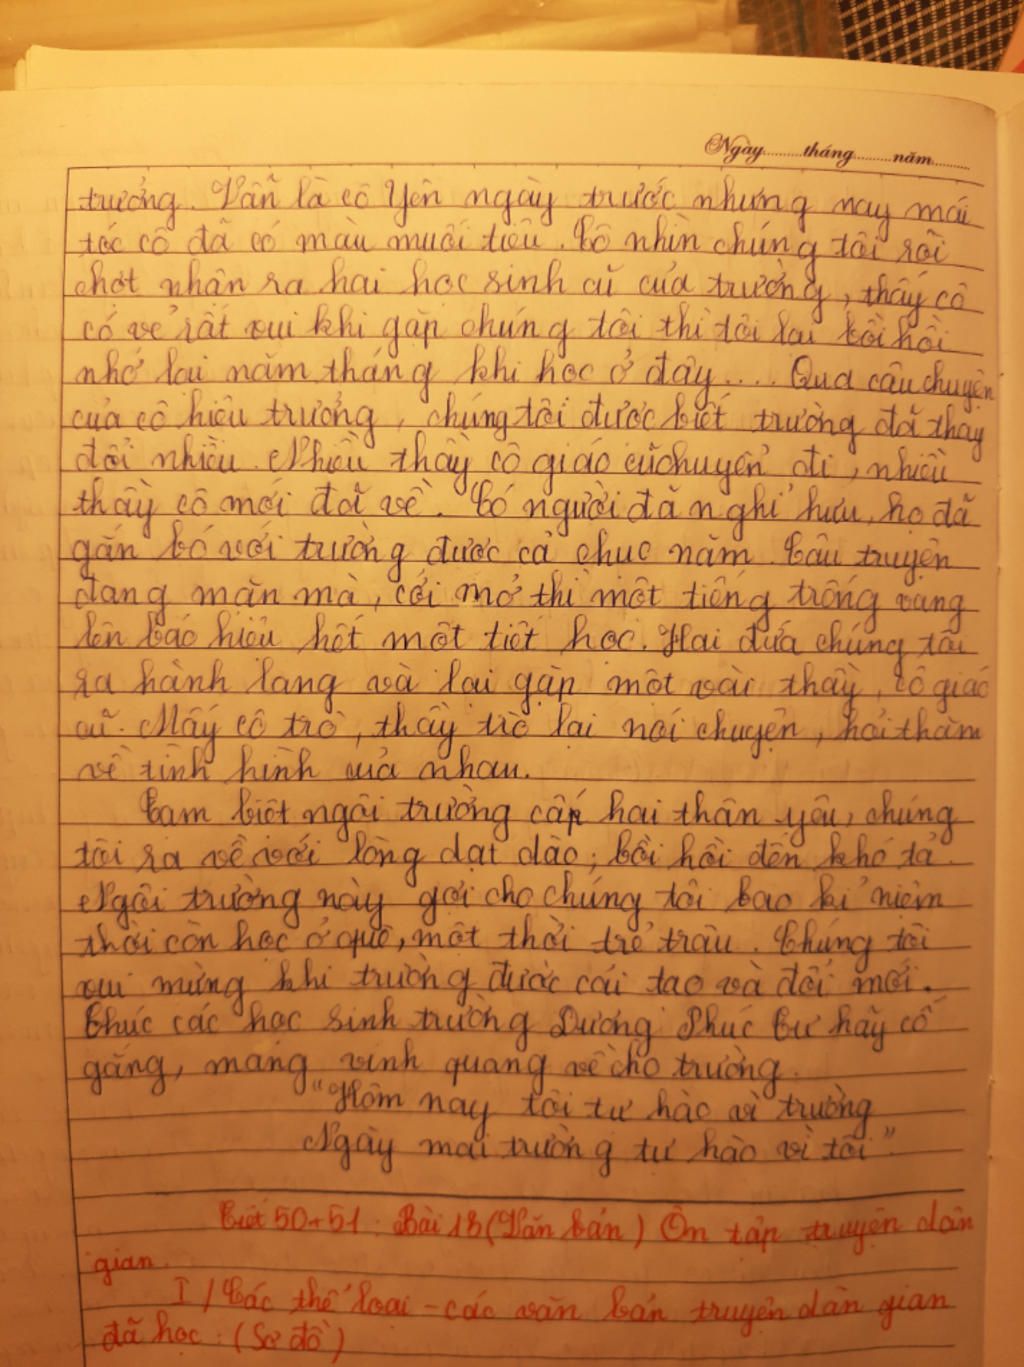 Ngày.........tháng.........năm.........
trưởng. Vẫn là cô Yên ngày trước nhưng nay mái
tóc cô đã có màu muối tiêu. Cô nhìn chúng tôi rồi
chợt nhận ra hai học sinh cũ của trường, thấy cô
có vẻ rất vui khi gặp chúng tôi thì tôi lại bồi hồi
nhớ lại năm tháng khi học ở đây.... Qua câu chuyện
của cô hiệu trưởng, chúng tôi được biết trường đã thay
đổi nhiều. Nhiều thầy cô giáo cũ chuyển đi, nhiều
thầy cô mới đã về. Có người đã nghỉ hưu, họ đã
gắn bó với trường được cả chục năm. Câu truyện
đang mặn mà, cởi mở thì một tiếng trống vang
lên báo hiệu hết một tiết học. Hai đứa chúng tôi
ra hành lang và lại gặp một vài thầy, cô giáo
cũ. Mấy cô trò, thầy trò lại nói chuyện, hỏi thăm
về tình hình của nhau.
Tạm biệt ngôi trường cấp hai thân yêu, chúng
tôi ra về với lòng dạt dào, bồi hồi đến khó tả.
Ngôi trường này gợi cho chúng tôi bao kỉ niệm
thời còn học ở quê, một thời trẻ trâu. Chúng tôi
vui mừng khi trường được cải tạo và đổi mới.
Chúc các học sinh trường Dương Phúc Tư hãy cố
gắng, mang vinh quang về cho trường.
"Hôm nay tôi tự hào vì trường
Ngày mai trường tự hào vì tôi"
Tiết 50+51: Bài 13 (Văn bản) Ôn tập truyện dân
gian.
I / Các thể loại - các văn bản truyện dân gian
đã học: (Sơ đồ)